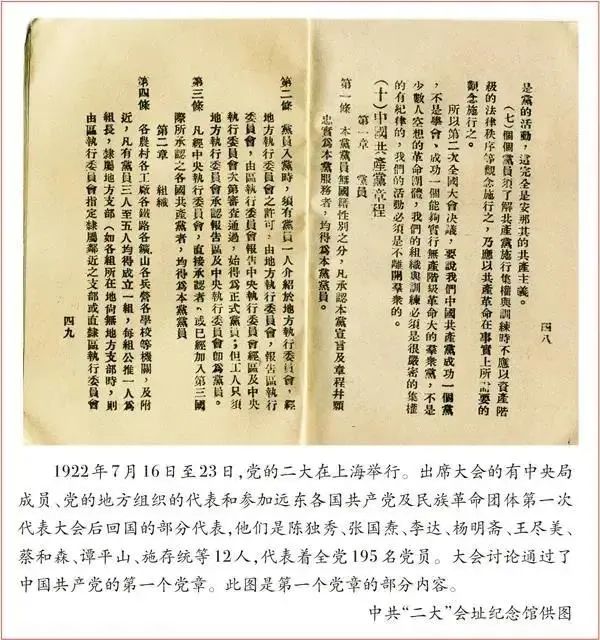 是黨的活動，這完全是安那其的共產主義。
（七）個個黨員須了解共產黨施行集權與訓練時不應以資產階
級的法律秩序等觀念施行之，乃應以共產革命在事實上所需要的
觀念施行之。
所以第二次全國大會決議，要說我們中國共產黨成功一個黨
，不是學會，成功一個能夠實行無產階級革命大的羣衆黨，不是
少數人空想的革命團體，我們的組織與訓練必須是很嚴密的集權
的有紀律的，我們的活動必須是不離開羣衆的。
（十）中國共產黨章程
第一章　黨員
第一條　本黨黨員無國籍性別之分，凡承認本黨宣旨及章程幷願
忠實爲本黨服務者，均得爲本黨黨員。
四八
第二條　黨員入黨時，須有黨員一人介紹於地方執行委員會，經
地方執行委員會之許可，由地方執行委員會，報告區執行
委員會，由區執行委員會報告中央執行委員會經區及中央
執行委員會次第審查通過，始得爲正式黨員；但工人只須
地方執行委員會承認報告區及中央執行委員會卽爲黨員。
第三條　凡經中央執行委員會，直接承認者，或已經加入第三國
際所承認之各國共產黨者，均得爲本黨黨員
第二章　組織
第四條　各農村各工廠各鐵路各鑛山各兵營各學校等機關，及附
近，凡有黨員三人至五人均得成立一組，每組公推一人爲
組長，隸屬地方支部（如各組所在地尙無地方支部時，則
由區執行委員會指定隸屬鄰近之支部或直隸區執行委員會
四九
1922年7月16日至23日，党的二大在上海举行。出席大会的有中央局
成员、党的地方组织的代表和参加远东各国共产党及民族革命团体第一次
代表大会后回国的部分代表，他们是陈独秀、张国焘、李达、杨明斋、王尽美、
蔡和森、谭平山、施存统等12人，代表着全党195名党员。大会讨论通过了
中国共产党的第一个党章。此图是第一个党章的部分内容。
中共“二大”会址纪念馆供图